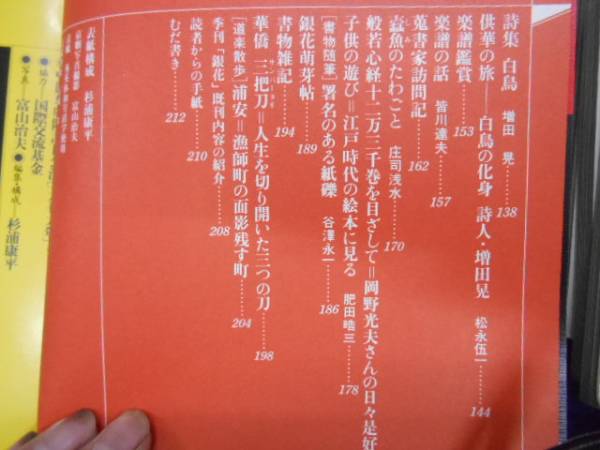 詩集 白鳥 増田 晃……138
供華の旅──白鳥の化身 詩人・増田晃 松永伍一……144
楽譜鑑賞……153
楽譜の話 皆川達夫……157
蒐書家訪問記……162
蠹魚のたわごと 庄司浅水……170
しみ
般若心経十二万三千巻を目ざして=岡野光夫さんの日々是好
子供の遊び=江戸時代の絵本に見る 肥田晧三……178
[書物随筆]署名のある紙礫 谷澤永一……186
銀花萌芽帖……189
書物雑記……194
華僑 三把刀=人生を切り開いた三つの刀……198
サンパータオ
[道楽散歩]浦安=漁師町の面影残す町……204
季刊『銀花』既刊内容の紹介……208
読者からの手紙……210
むだ書き……212
表紙構成 杉浦康平
富山治夫
●協力──国際交流基金
●写真──富山治夫 ●編集・構成──杉浦康平